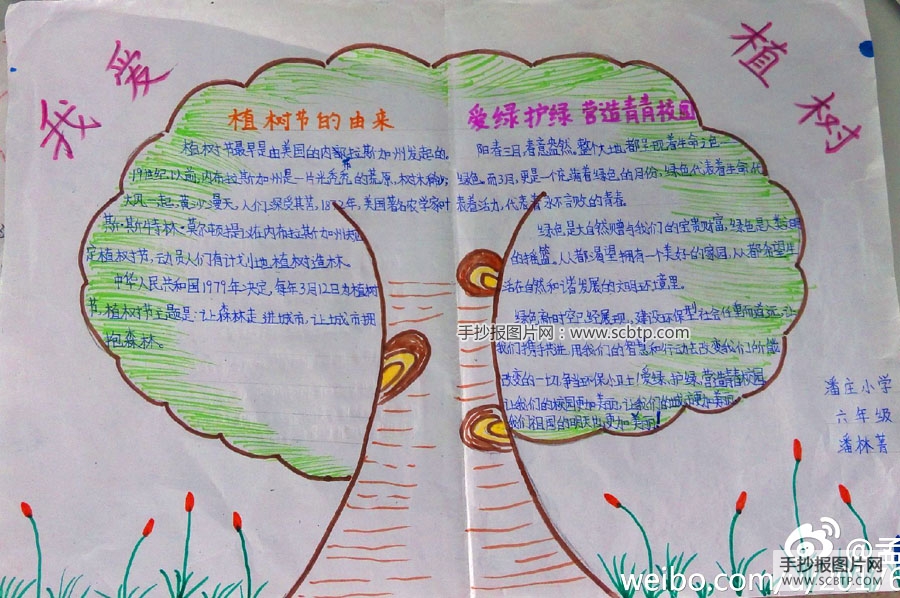 我爱
植树
植树节的由来
植树节最早是由美国的内部拉斯加州发起的。
19世纪以前,内布拉斯加州是一片光秃秃的荒原,树木稀少,
大风一起,黄沙漫天,人们深受其苦,1872年,美国著名农学家叶
斯·斯特林·莫尔顿提议在内布拉斯加州规
定植树节,动员人们有计划地植树造林。
中华人民共和国1979年决定,每年3月12日为植树
节,植树节主题是:让森林走进城市,让城市拥
抱森林。
爱绿护绿 营造青青校园
阳春三月,春意盎然。整个大地,都呈现着生命之色
绿色。而3月,更是一个充满着绿色的月份,绿色代表着生命,代
表着活力,代表着永不言败的青春
绿色是大自然赠与我们的宝贵财富,绿色是人类文明
的摇篮。人人都渴望拥有一个美好的家园,人人都希望生
活在自然和谐发展的文明环境里。
绿色新时空已经展现,建设环保型社会任重而道远,让
我们携手共进,用我们的智慧和行动去改变我们所能
改变的一切,争当环保小卫士!爱绿,护绿,营造青青校园
让我们的校园更加美丽,让我们的城市更加美丽,
我们祖国的明天也更加美丽!
潘庄小学
六年级
潘林菁
手抄报图片网
www.scbtp.com
手抄报图片网
WWW.SCBTP.COM
weibo.com/